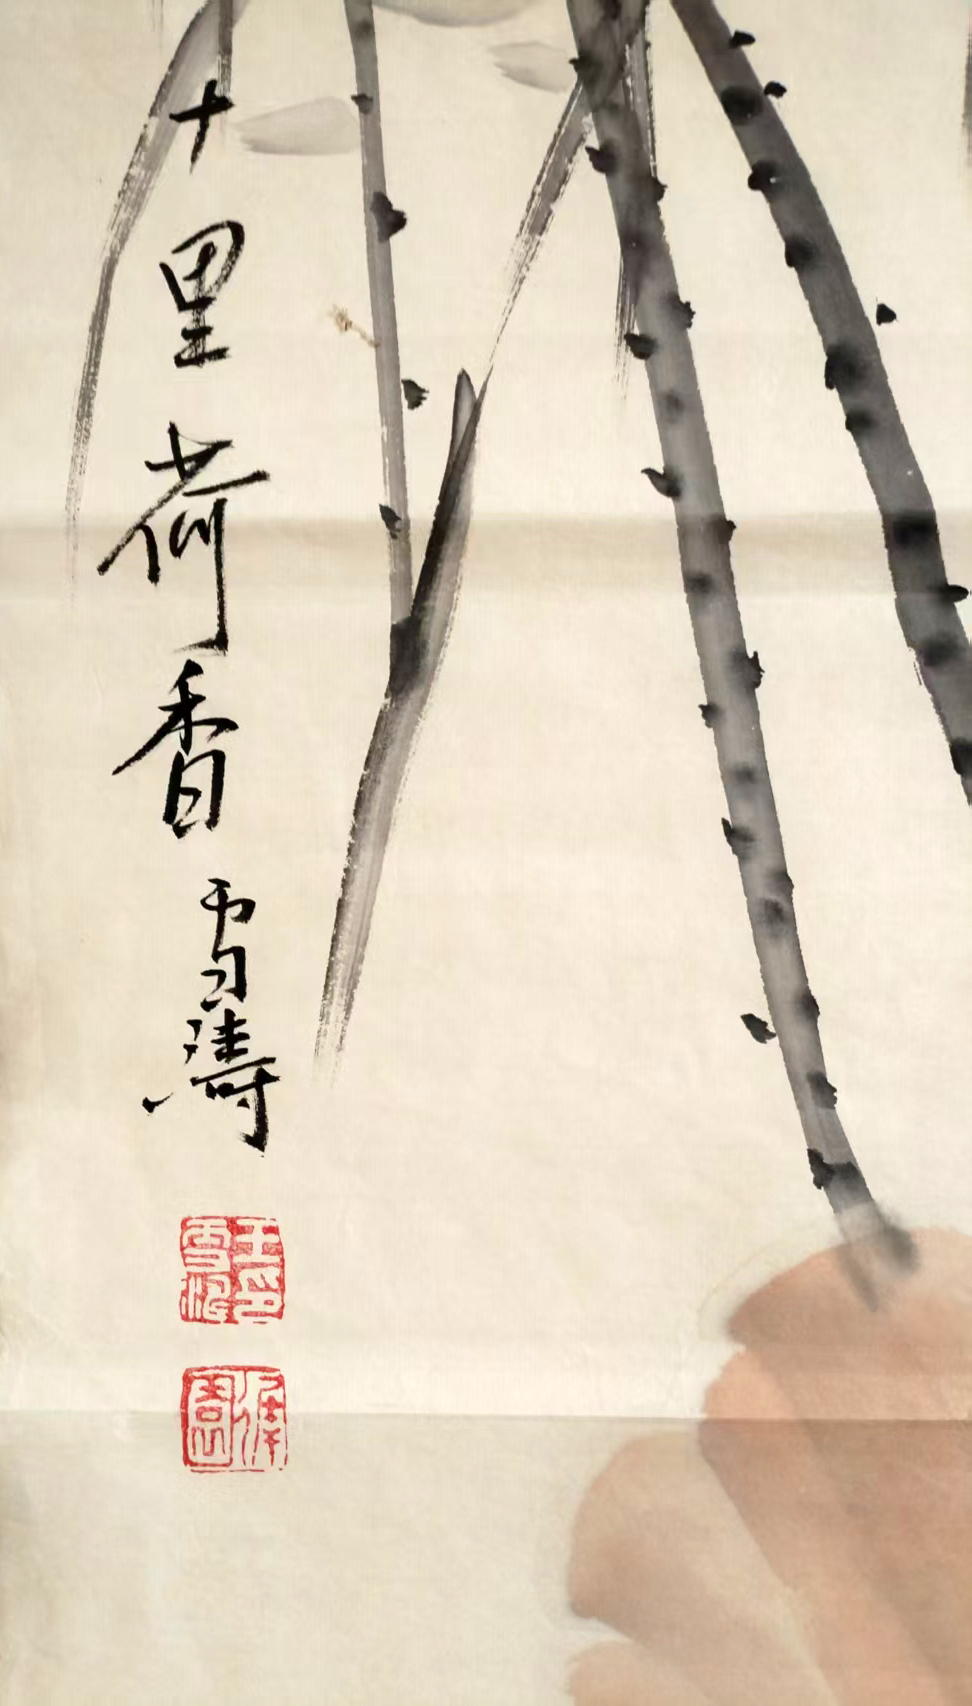 十里荷香
雪濤
王雪濤印